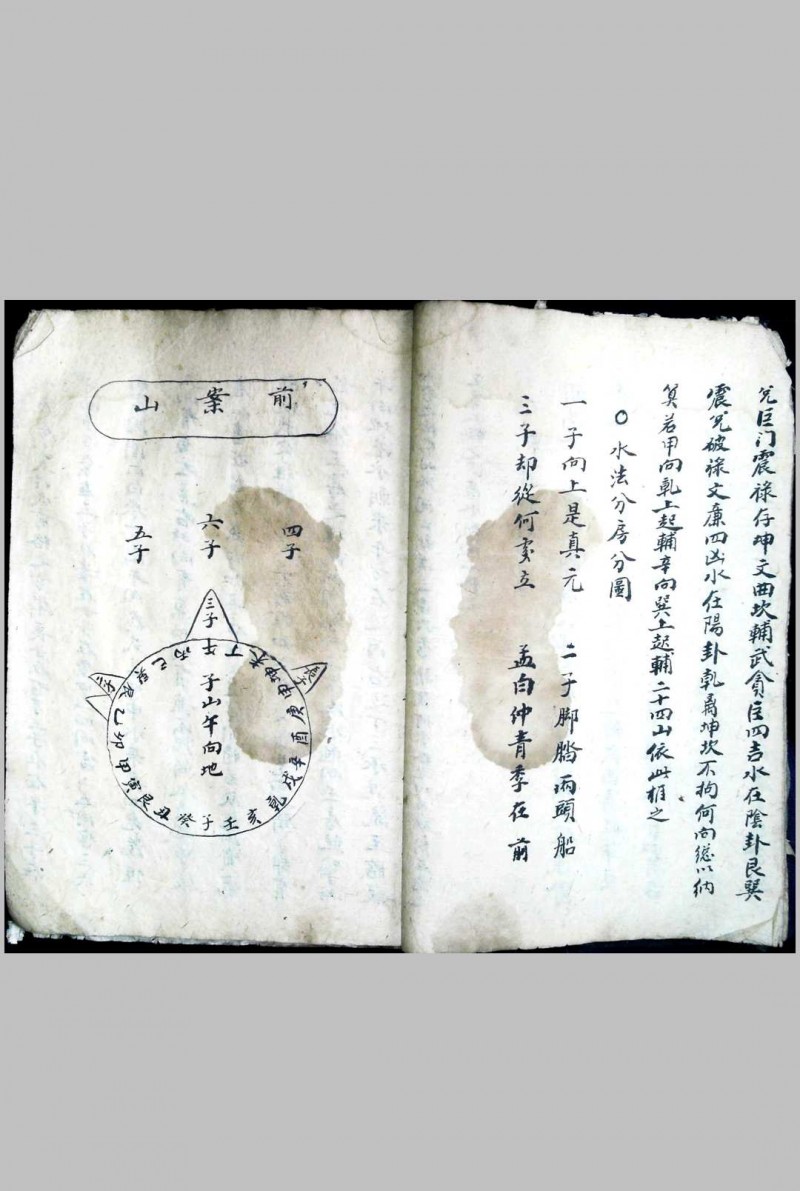 兑巨门震祿存坤文曲坎輔武貪巨四吉水在陰卦艮巽
震兑破祿文廉四凶水在陽卦乾离坤坎不拘何向総以纳
算若甲向乾上起輔辛向巽上起輔二十四山依此推之
○水法分房分圖
一子向上是真元 二子脚踏兩頭船
三子却從何处立 孟白仲青季在前
前案山
四子
六子
五子
三子
長子
二子
子山午向地
午丁未坤申庚酉辛戌乾亥壬子癸丑艮寅甲卯乙辰巽巳丙